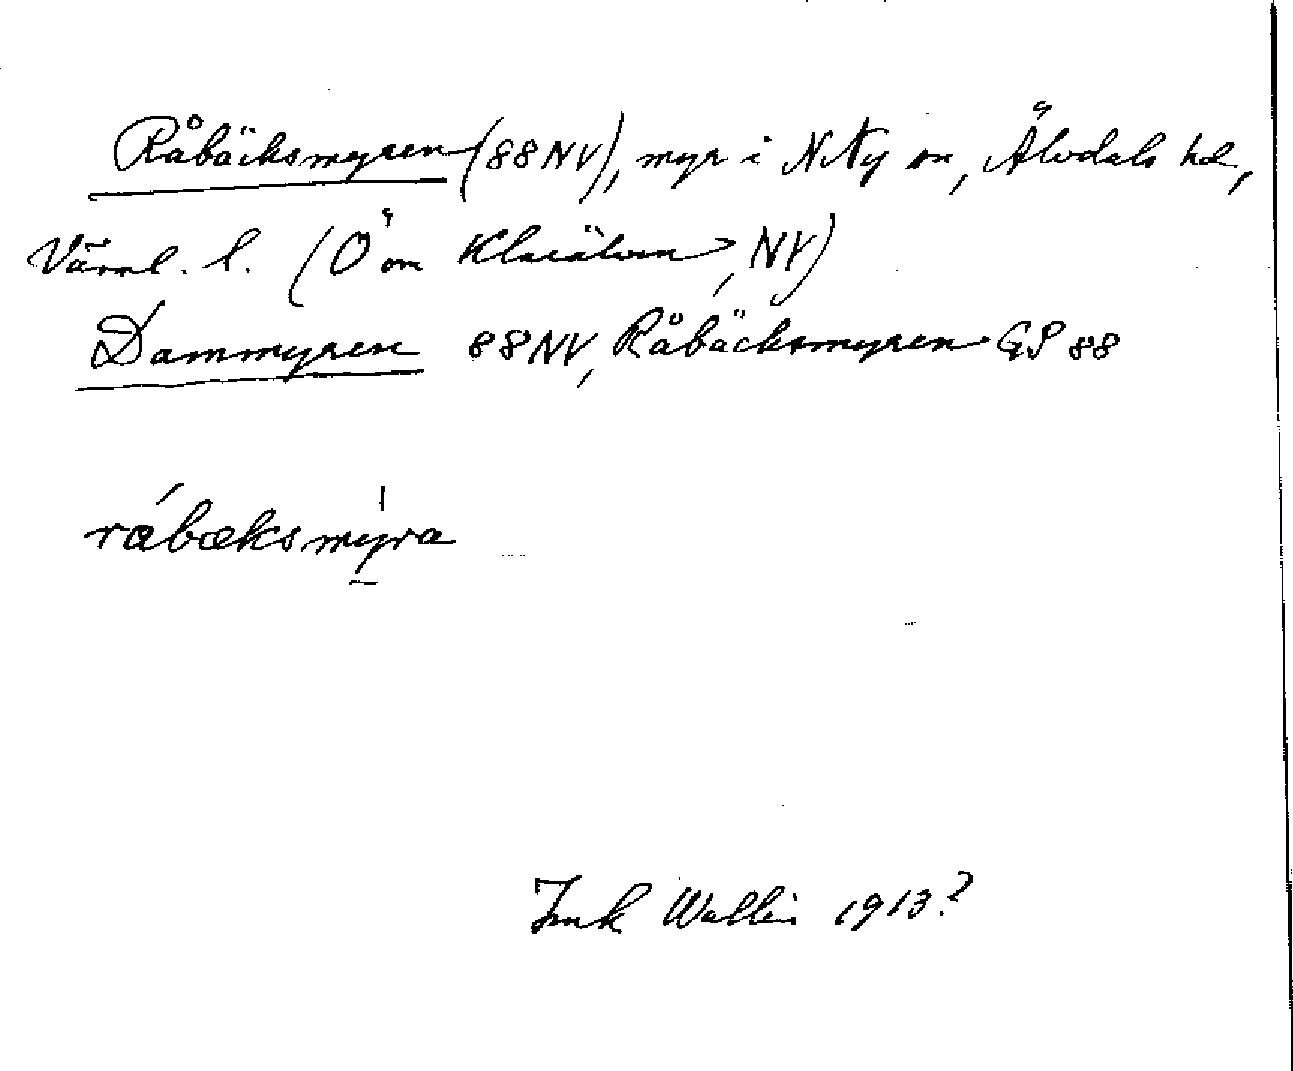 Råbäcksmyren (88NV), myr i N Ny sn, Älvdals hd,
Värml. l. (Ö om Klarälven, NV)
Dammyren 88NV, Råbäcksmyren GS 88
råbæksmýra
Wallin 1913?